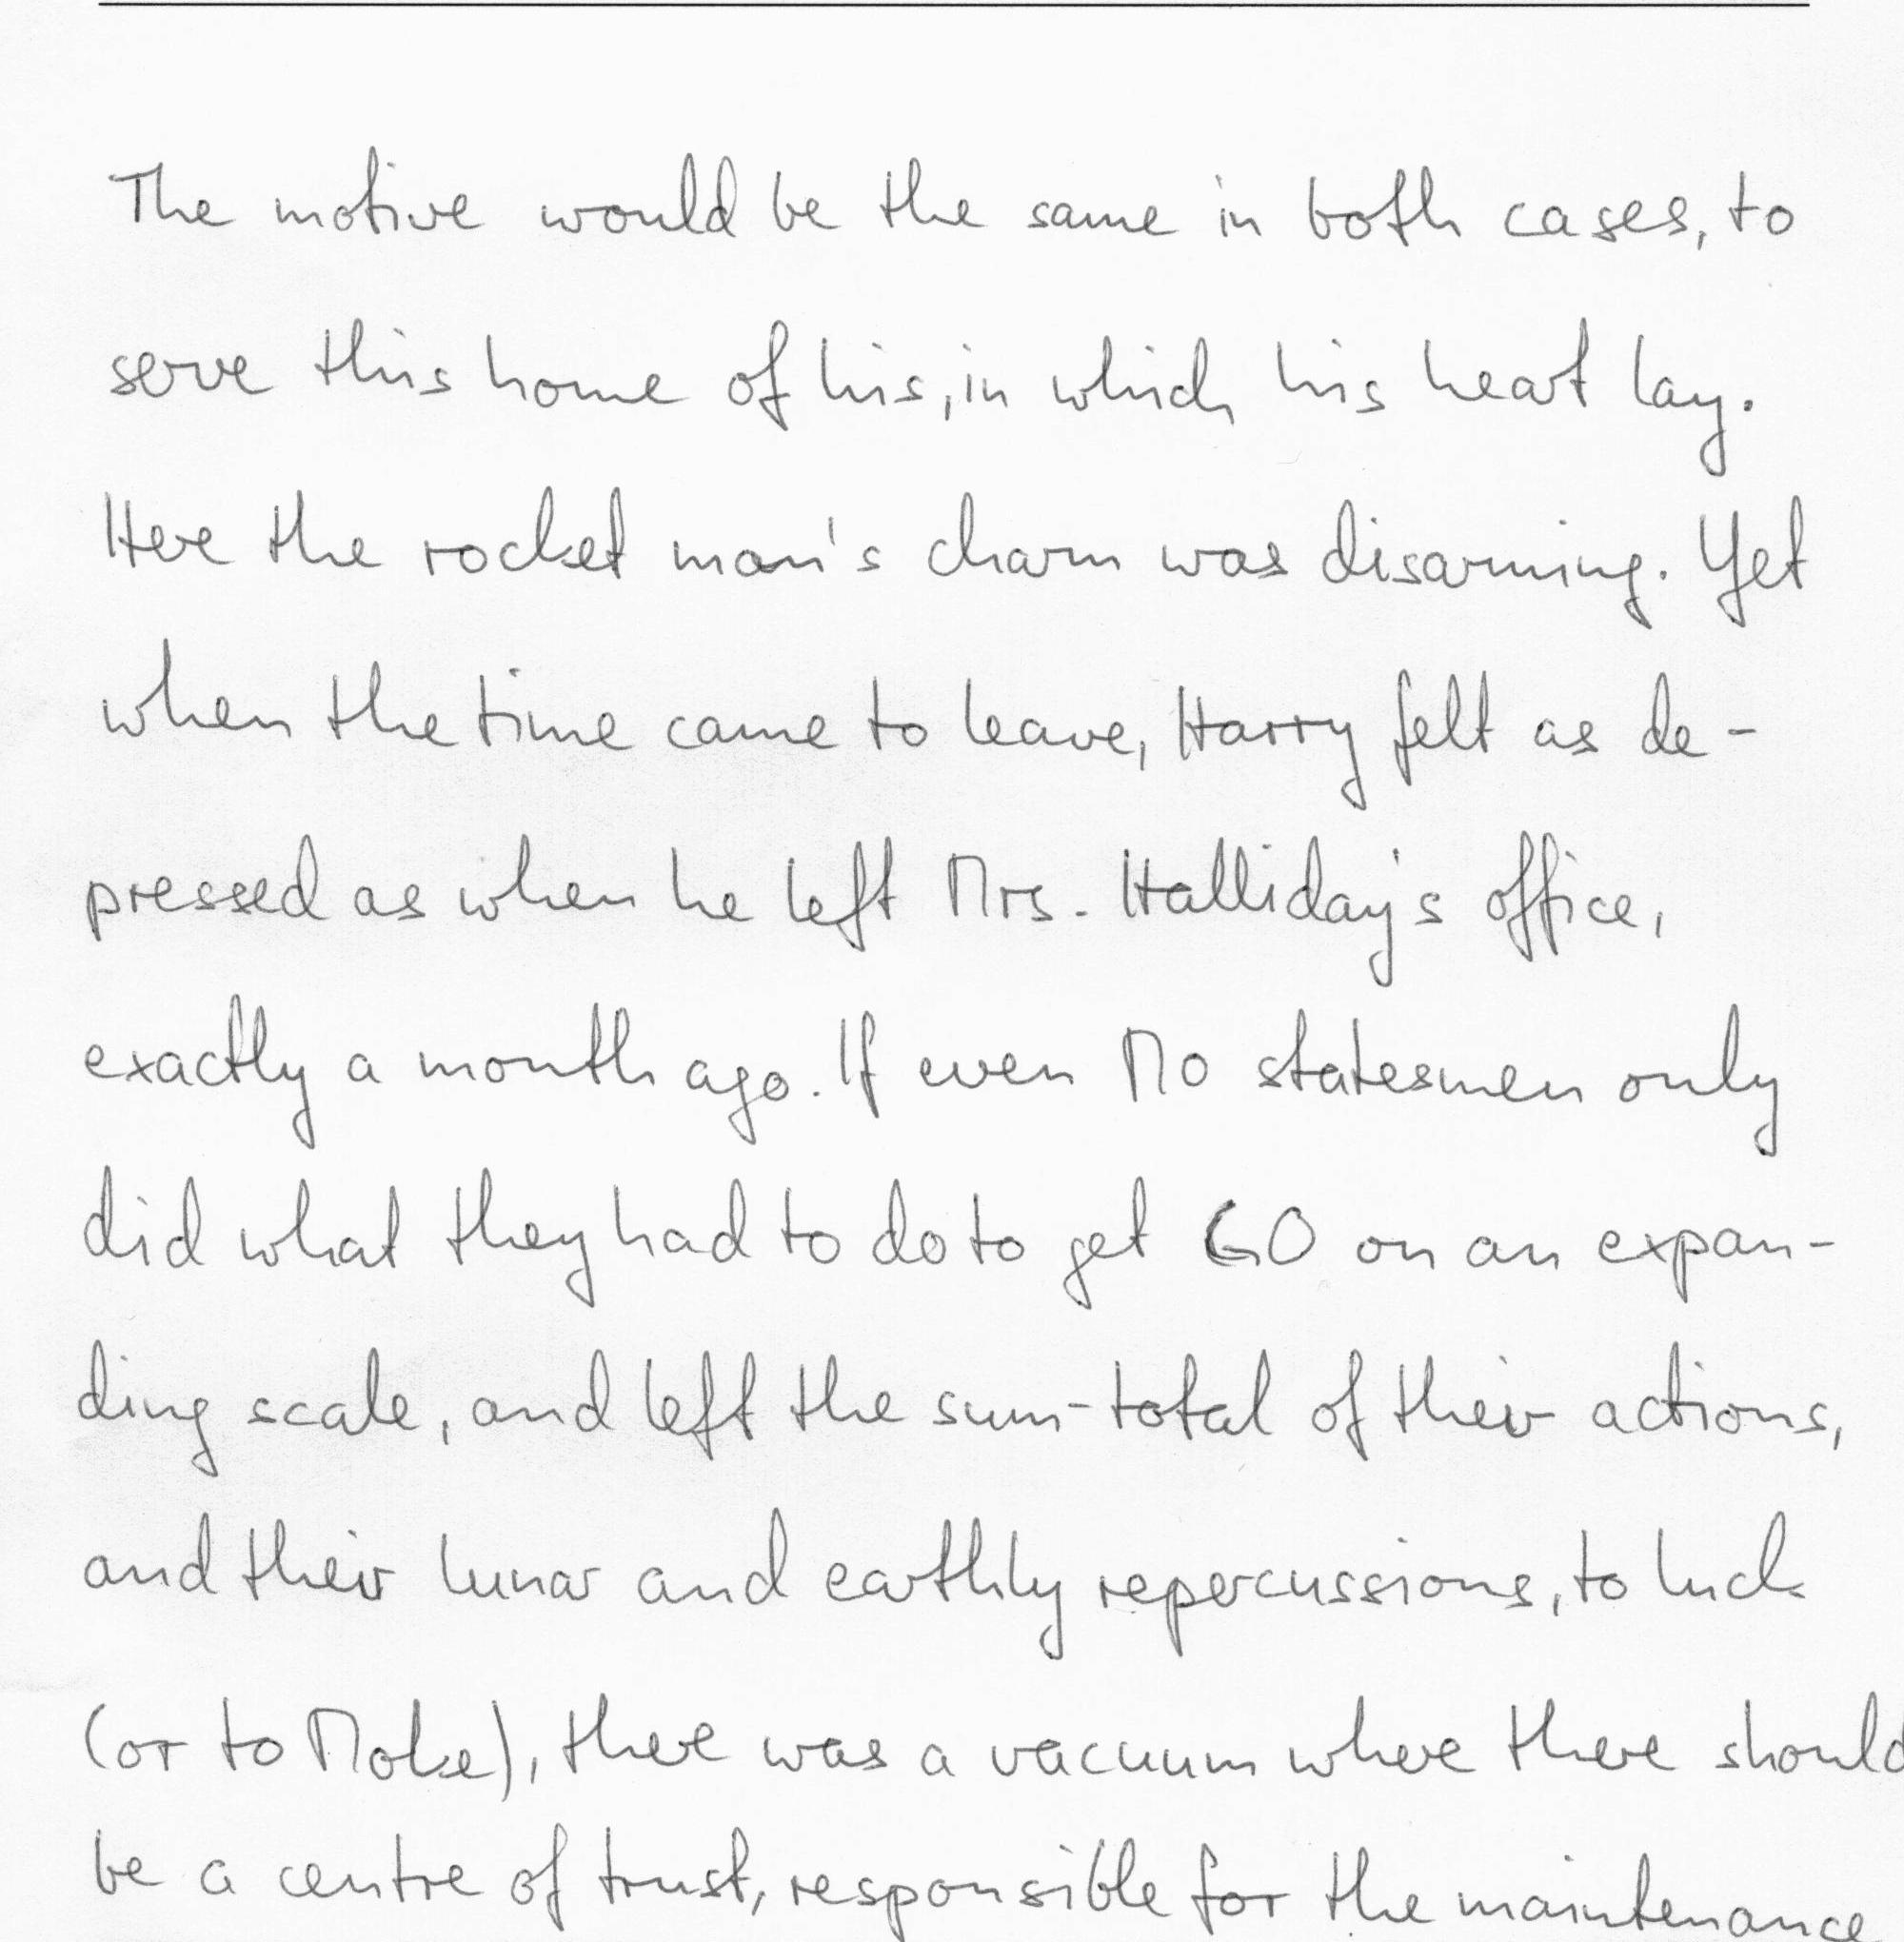 The motive would be the same in both cases, to
serve this home of his, in which his heart lay.
Here the rocket man's charm was disarming. Yet
when the time came to leave, Harry felt as de-
pressed as when he left Mrs. Halliday's office,
exactly a month ago. If even No statesmen only
did what they had to do to get GO on an expan-
ding scale, and left the sum-total of their actions,
and their lunar and earthly repercussions, to luck
(or to Moke), there was a vacuum where there should
be a centre of trust, responsible for the maintenance